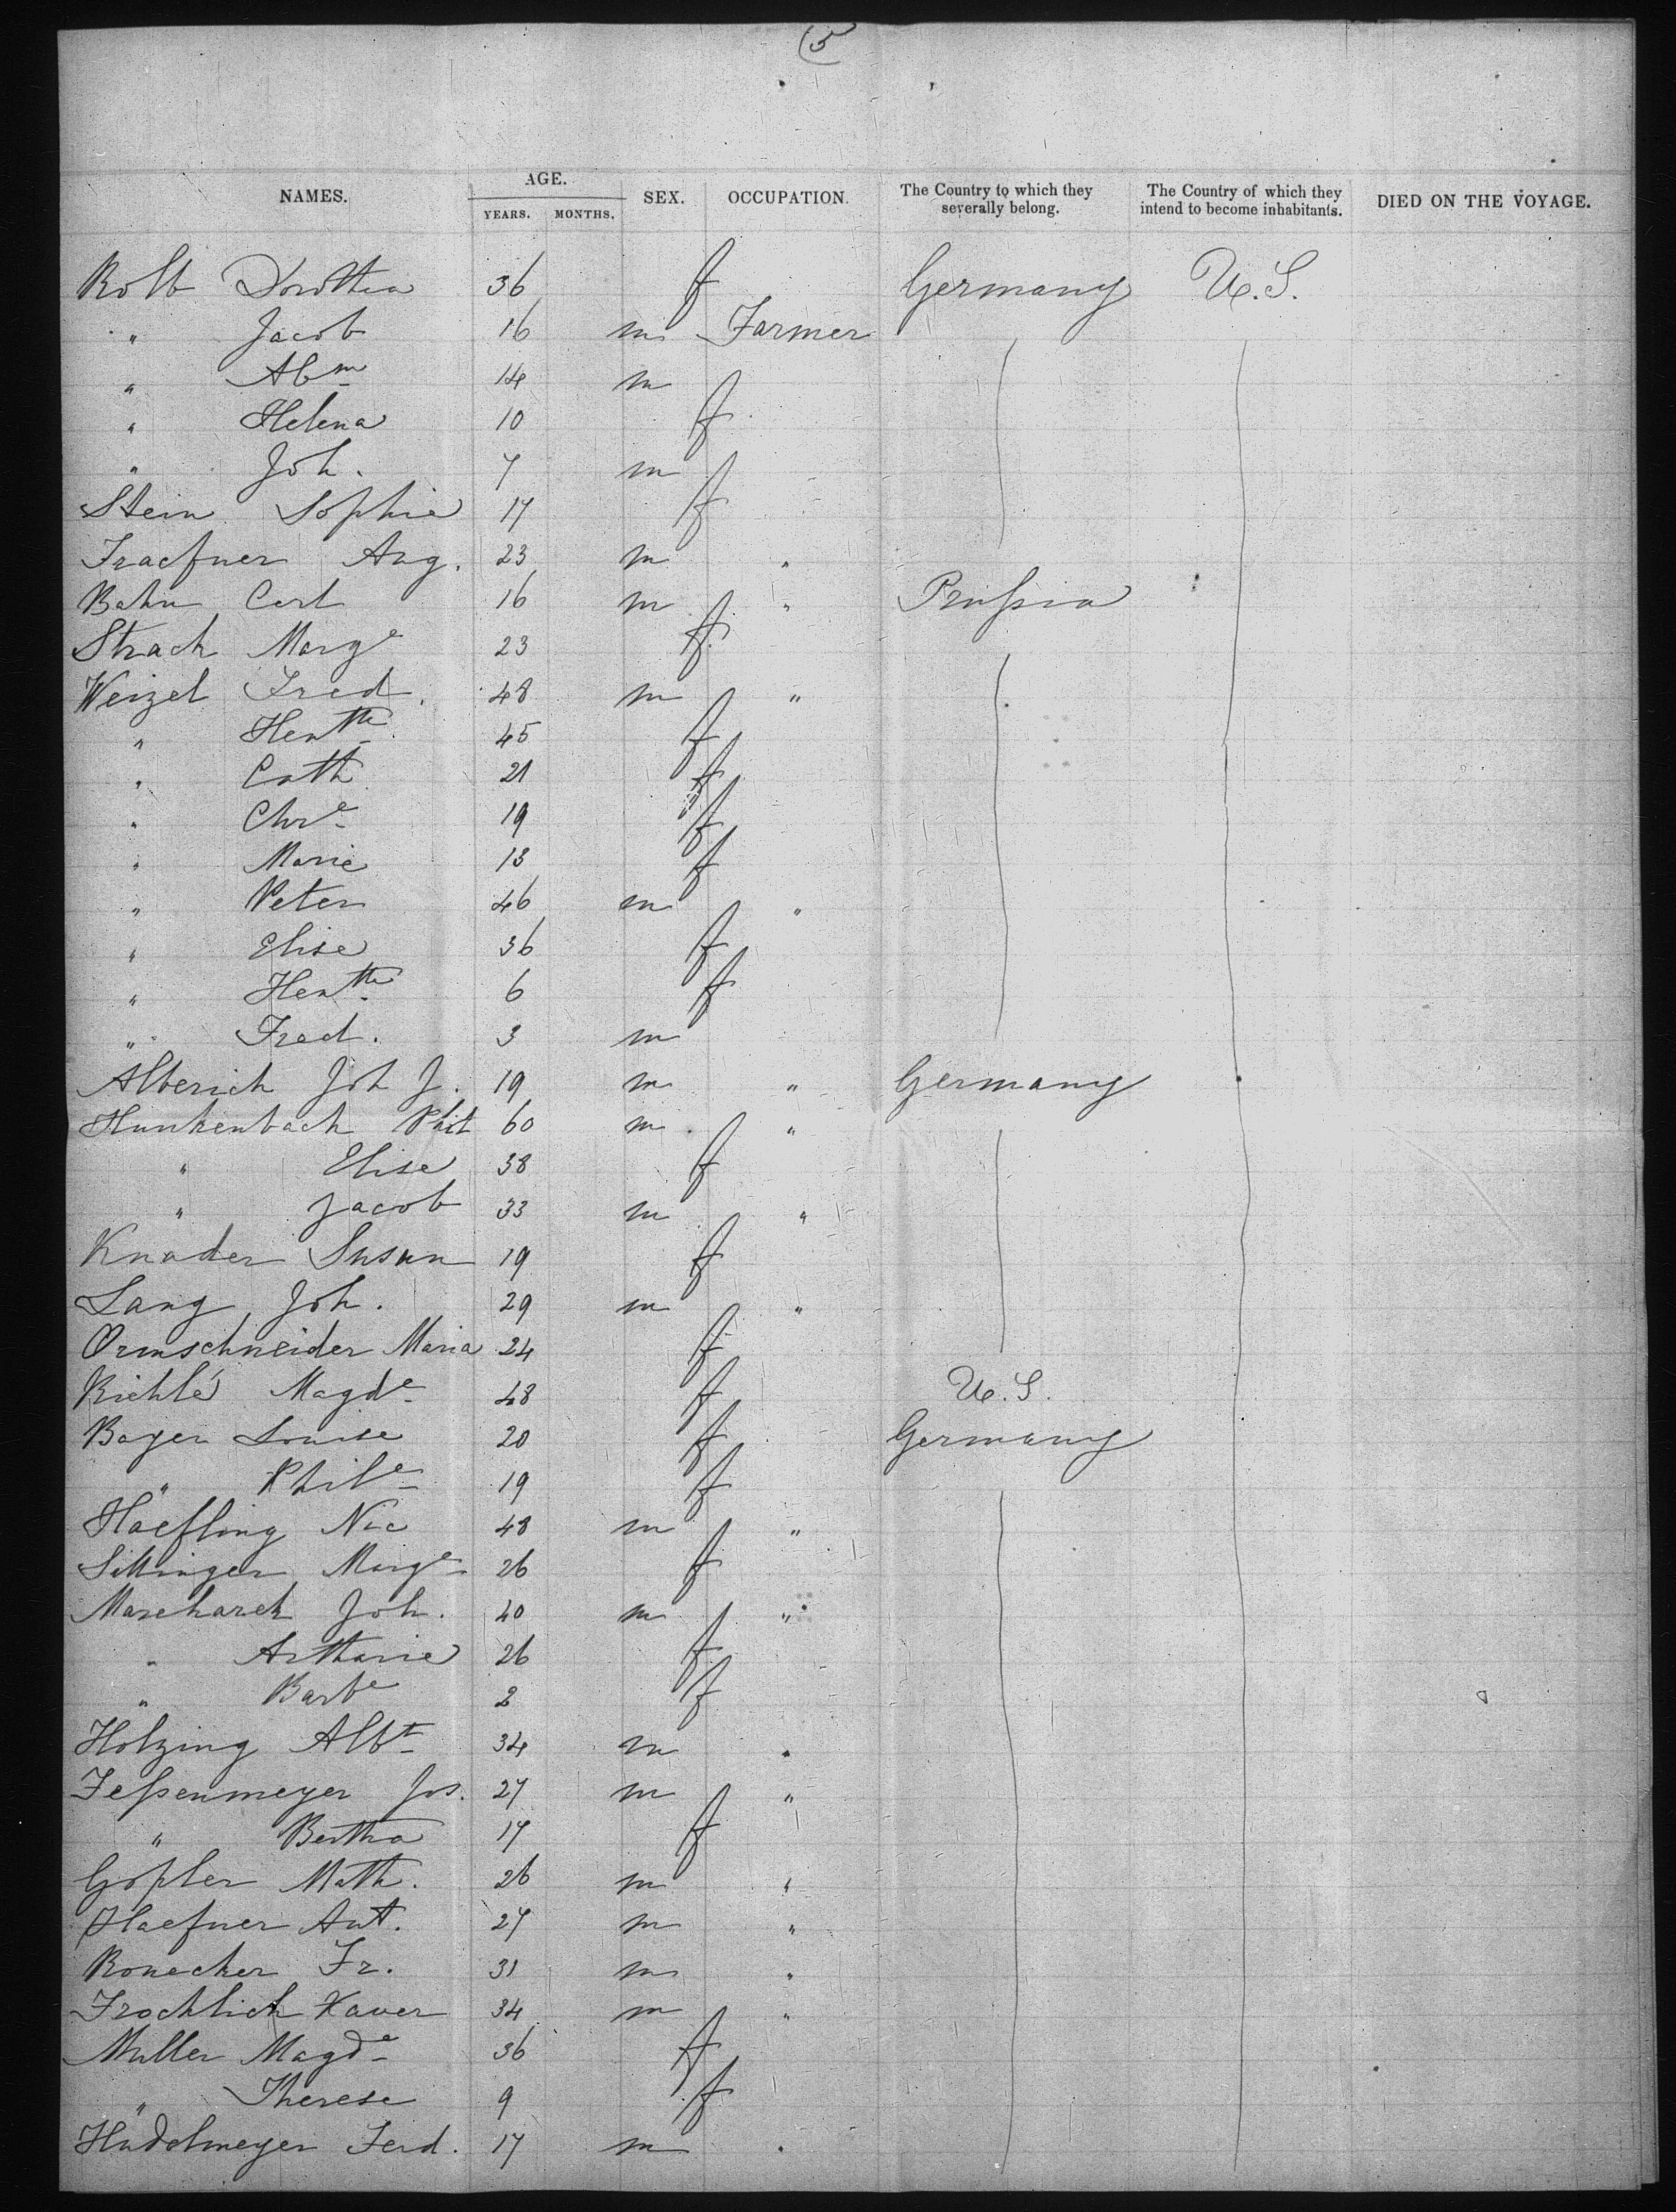 5
NAMES. AGE. YEARS. MONTHS. SEX. OCCUPATION. The Country to which they severally belong. The Country of which they intend to become inhabitants. DIED ON THE VOYAGE.
Kolb Dorothea 36 f Germany U.S.
" Jacob 16 m Farmer
" Abm 14 m
" Helena 10 f
" Joh. 7 m
Stein Sophie 17 f
Aug. 23 m "
Bahn Carl 16 m " Prussia
Strack Marge 23 f
Weizel Fred. 48 m "
" Hentte 45 f
" Cath 21 f
" Chre 19 f
" Marie 13 f
" Peter 46 m "
" Elise 36 f
" Hentte 6 f
" Fred. 3 m
Alberich Joh J. 19 m " Germany
Hunkenbach Phil 60 m "
" Elise 38 f
" Jacob 33 m "
Knader Susan 19 f
Lang Joh. 29 m "
Ormschneider Maria 24 f
Riehlé Magde 48 f U.S.
Bayer Louise 20 f Germany
" Phile 19 f
Haefling Nic 48 m "
Marge 26 f
Joh. 40 m "
" 26 f
" Barbe 2 f
Holzing Albt 34 m "
Jos. 27 m "
" Bertha 17 f
Math. 26 m "
Haefner Ant. 27 m "
Ronecker Fr. 31 m "
Froehlich Xaver 34 m "
Muller Magde 36 f
" Therese 9 f
Hudelmeyer Ferd. 17 m "